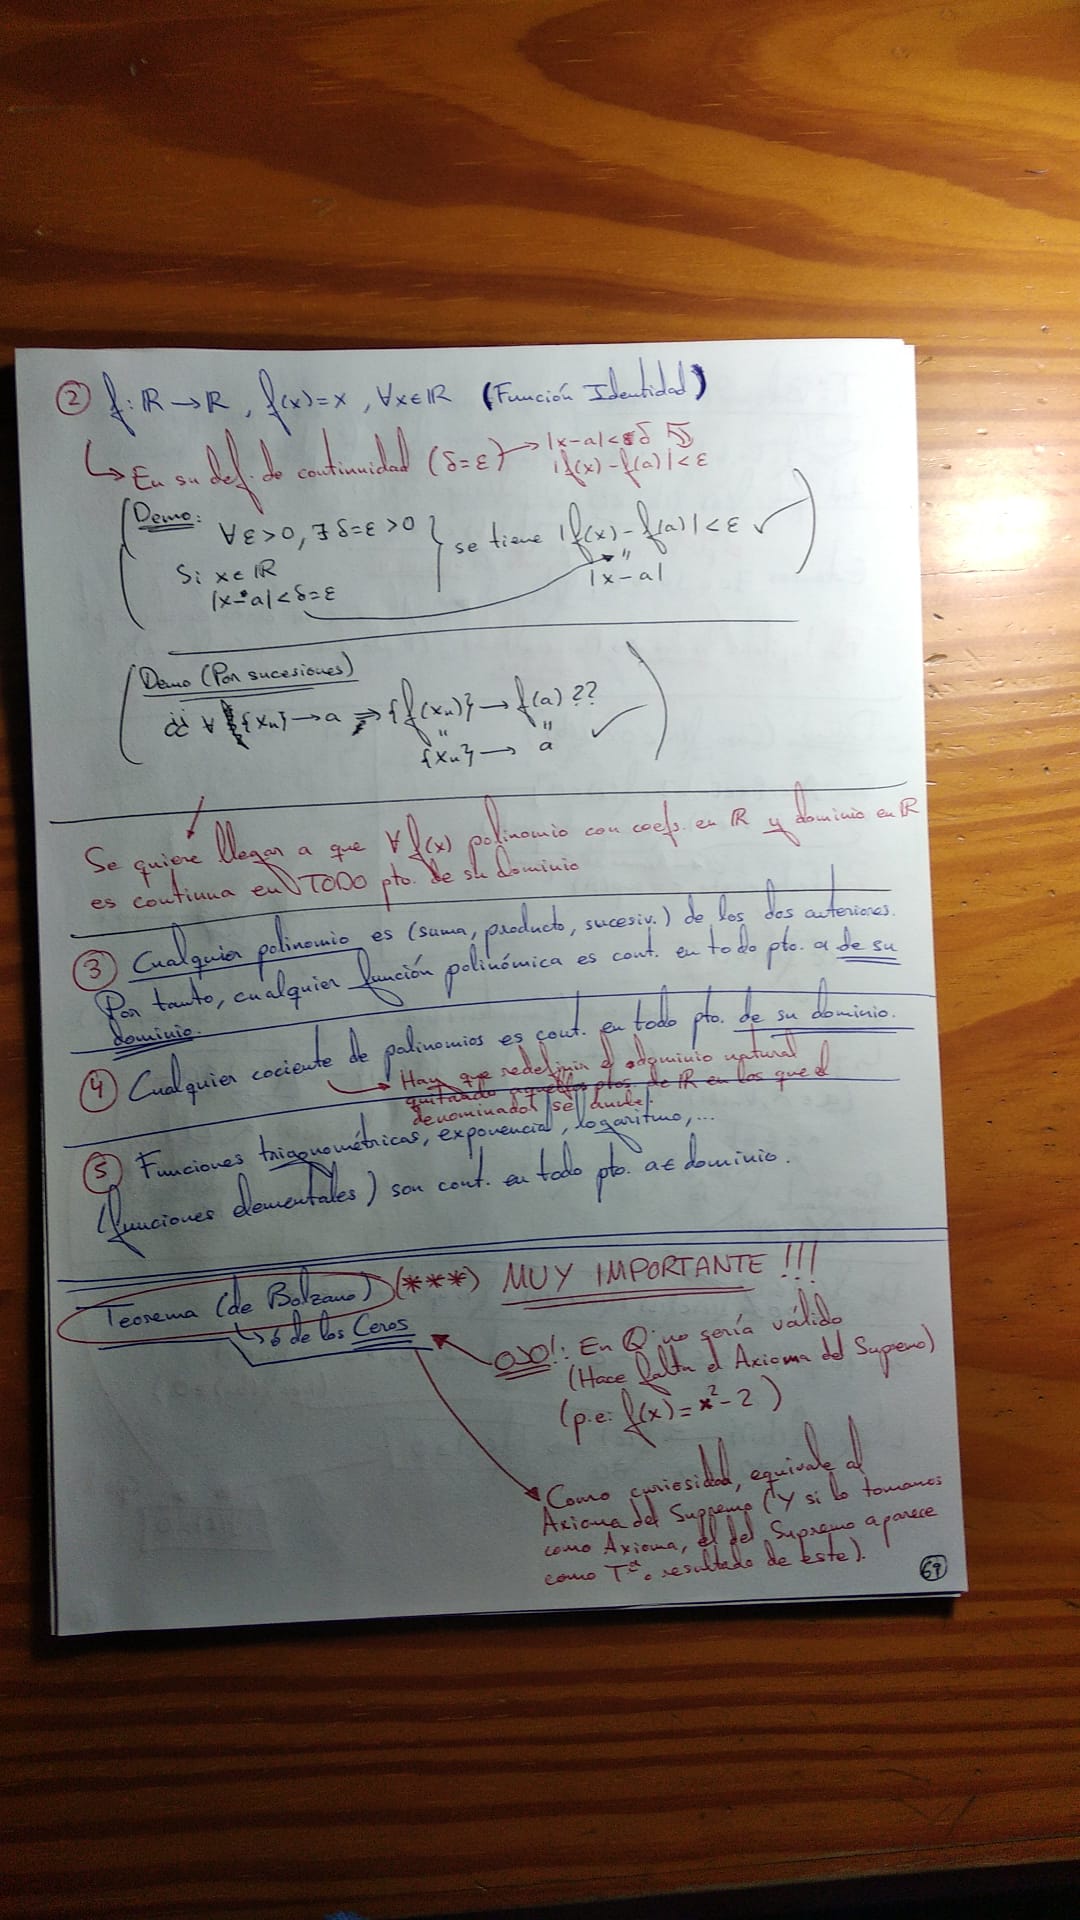 ② f: ℝ → ℝ, f(x)=x, ∀x∈ℝ (Función Identidad)
↳ En su def. de continuidad (δ=ε) → |x-a|<δ
|f(x)-f(a)|<ε
Demo:
∀ε>0, ∃ δ=ε>0
Si x∈ℝ
|x-a|<δ=ε
se tiene |f(x)-f(a)|<ε ✓
"
|x-a|
Demo (Por sucesiones)
¿¿ ∀ {xₙ} → a ⇒ {f(xₙ)} → f(a) ??
" "
{xₙ} → a ✓
Se quiere llegar a que ∀ f(x) polinomio con coefs. en ℝ y dominio en ℝ
es continua en TODO pto. de su dominio
③ Cualquier polinomio es (suma, producto, sucesiv.) de los dos anteriores.
Por tanto, cualquier función polinómica es cont. en todo pto. a de su
dominio.
④ Cualquier cociente de polinomios es cont. en todo pto. de su dominio.
→ Hay que redefinir el dominio natural
quitando aquellos ptos. de ℝ en los que el
denominador se anule.
⑤ Funciones trigonométricas, exponencial, logaritmo,...
(funciones elementales) son cont. en todo pto. a∈dominio.
Teorema (de Bolzano) (***) MUY IMPORTANTE!!!
↳ ó de los Ceros
OJO!: En ℚ no sería válido
(Hace falta el Axioma del Supremo)
(p.e: f(x)=x²-2)
Como curiosidad, equivale al
Axioma del Supremo (Y si lo tomamos
como Axioma, el del Supremo aparece
como Tª o resultado de este).
69